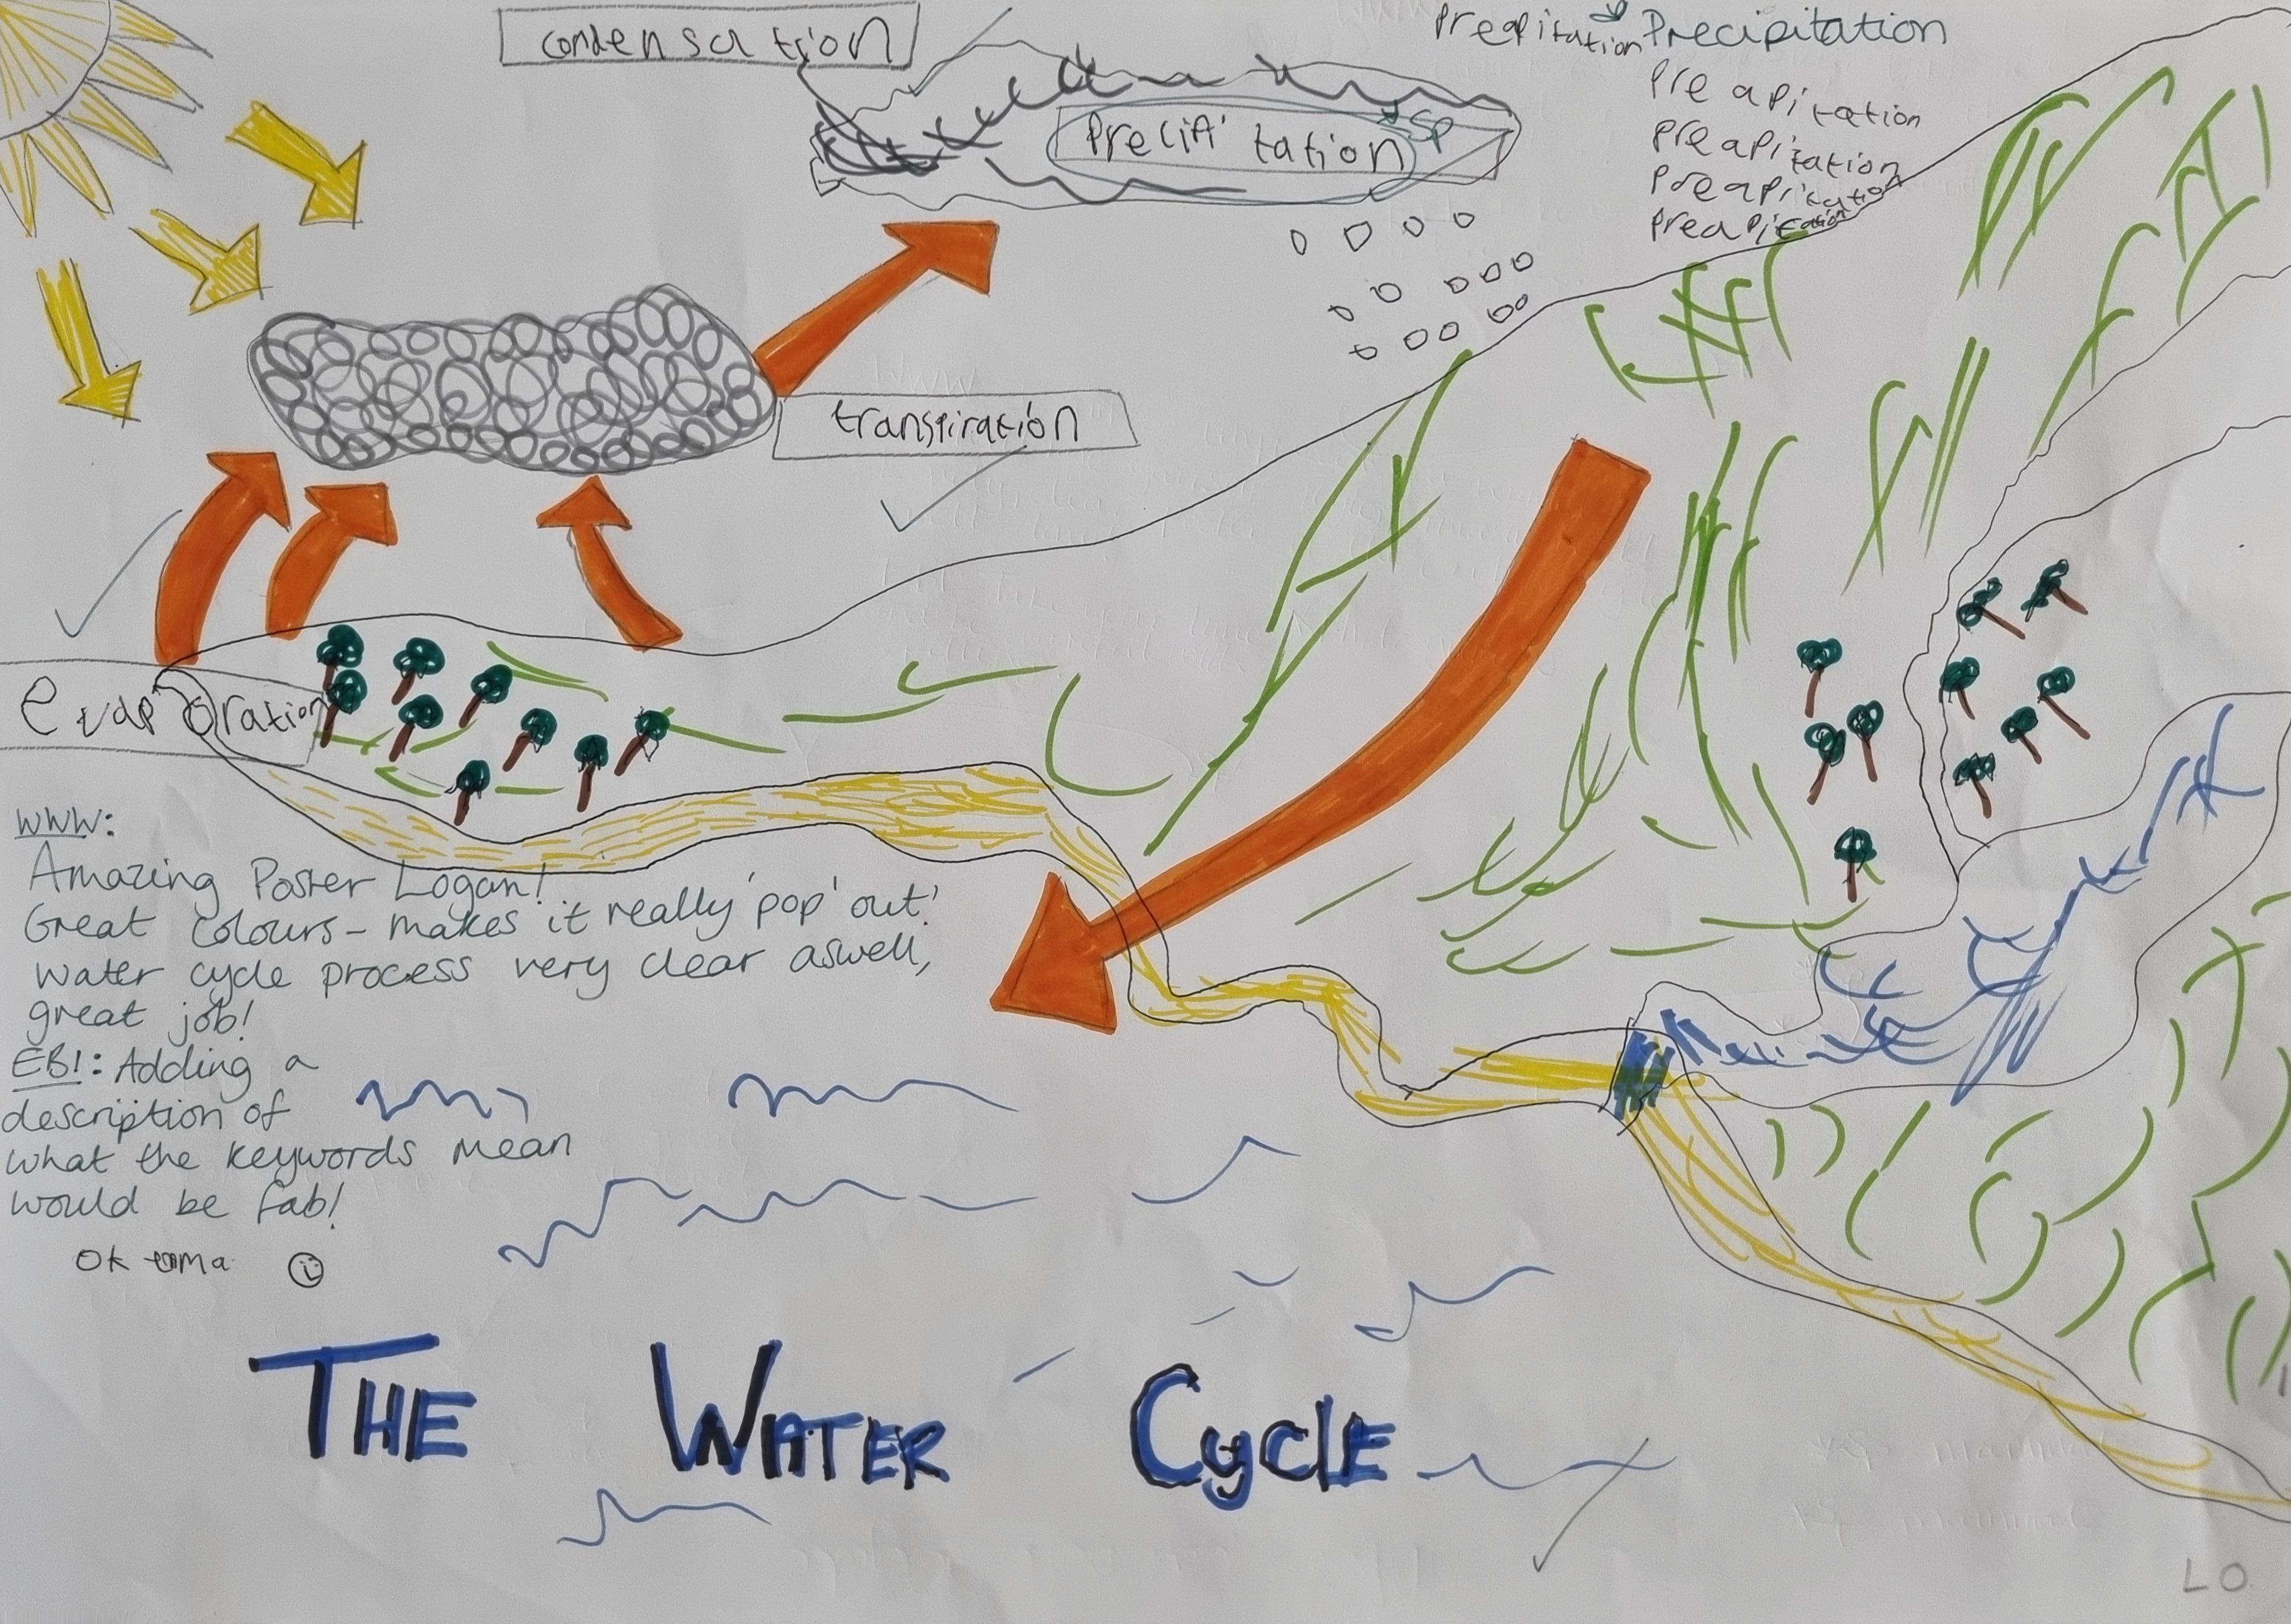 condensation
Preapitation Precipitation
Preapitation
Preapitation
Preapitation
Preapitation
Sp
transpiration
evaporation
WWW:
Amazing Poster Logan!
Great colours - makes it really 'pop' out!
Water cycle process very clear aswell,
great job!
EBI: Adding a
description of
what the keywords mean
would be fab!
Ok
THE WATER CYcLE
LO